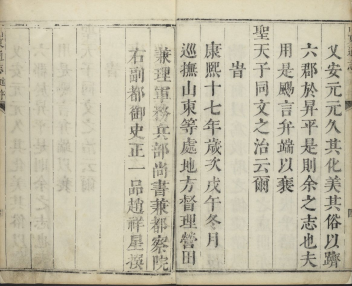 乂安元元久其化美其俗以躋
六郡於昇平是則余之志也夫
用是颺言弁端以襄
聖天子同文之治云爾
旹
康熙十七年歲次戊午冬月
巡撫山東等處地方督理營田
兼理軍務兵部尚書兼都察院
右副都御史正一品趙祥星撰